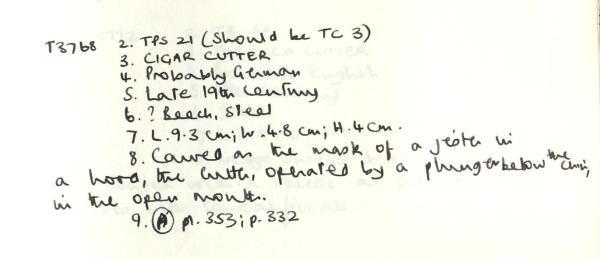 T3768 2. TPS 21 (Should be TC 3)
3. CIGAR CUTTER
4. Probably German
5. Late 19th Century
6. ? Beech, Steel
7. L.9.3 cm; W.4.8 cm; H.4 cm.
8. Carved as the mask of a jester in
a hood, the cutter, operated by a plunger below the chin,
in the open mouth.
9. (A) p. 353; p. 332